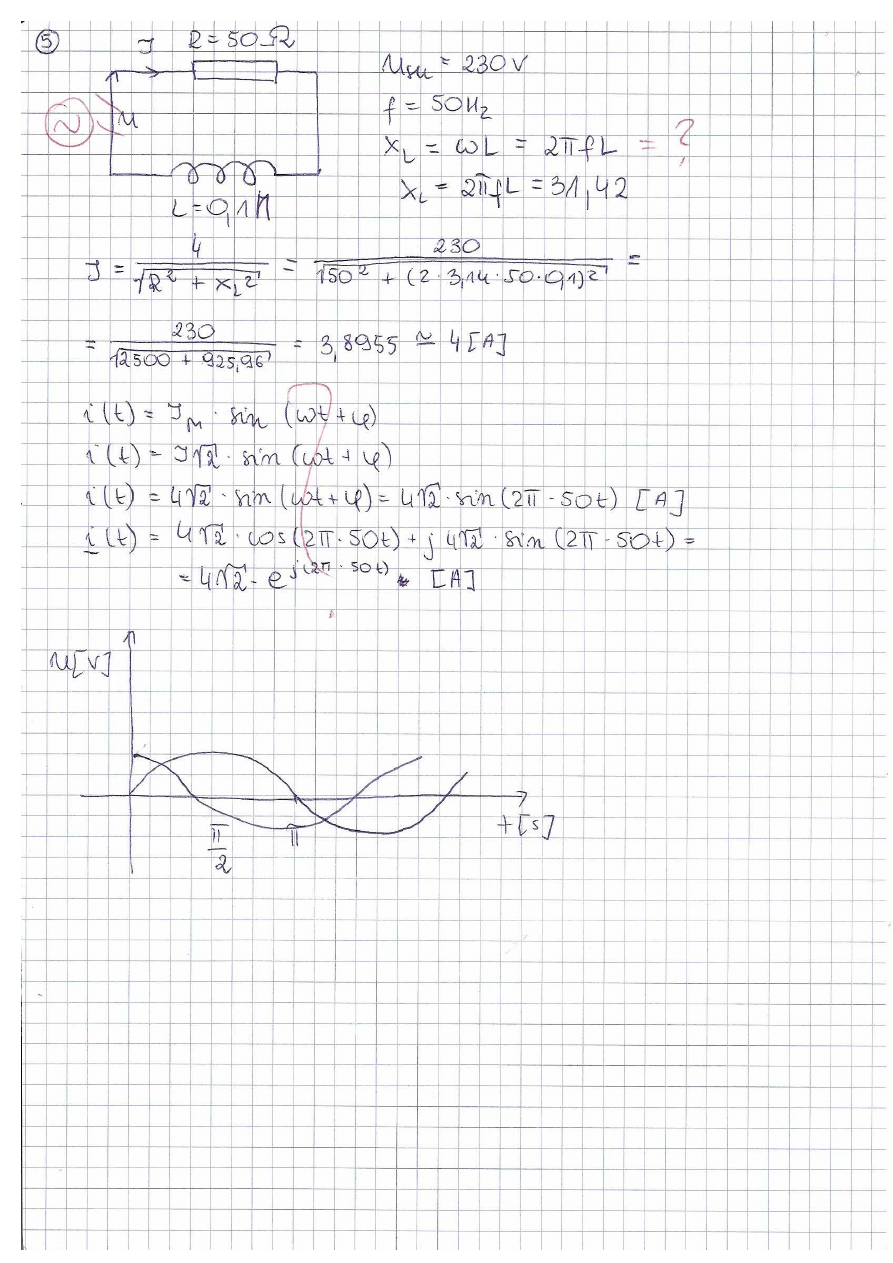 ⑤ I R = 50 Ω
U_sk = 230 V
f = 50Hz
~ U
X_L = ωL = 2πfL = ?
X_L = 2πfL = 31,42
L = 0,1H
I = U / √(R² + X_L²) = 230 / √(50² + (2·3,14·50·0,1)²) =
= 230 / √(2500 + 925,96) = 3,8955 ≃ 4 [A]
i(t) = I_M · sin (ωt + φ)
i(t) = I√2 · sin (ωt + φ)
i(t) = 4√2 · sin (ωt + φ) = 4√2 · sin (2π · 50t) [A]
i(t) = 4√2 · cos (2π · 50t) + j 4√2 · sin (2π · 50t) =
= 4√2 · e^j(2π · 50t) [A]
U[V]
π/2 π t[s]